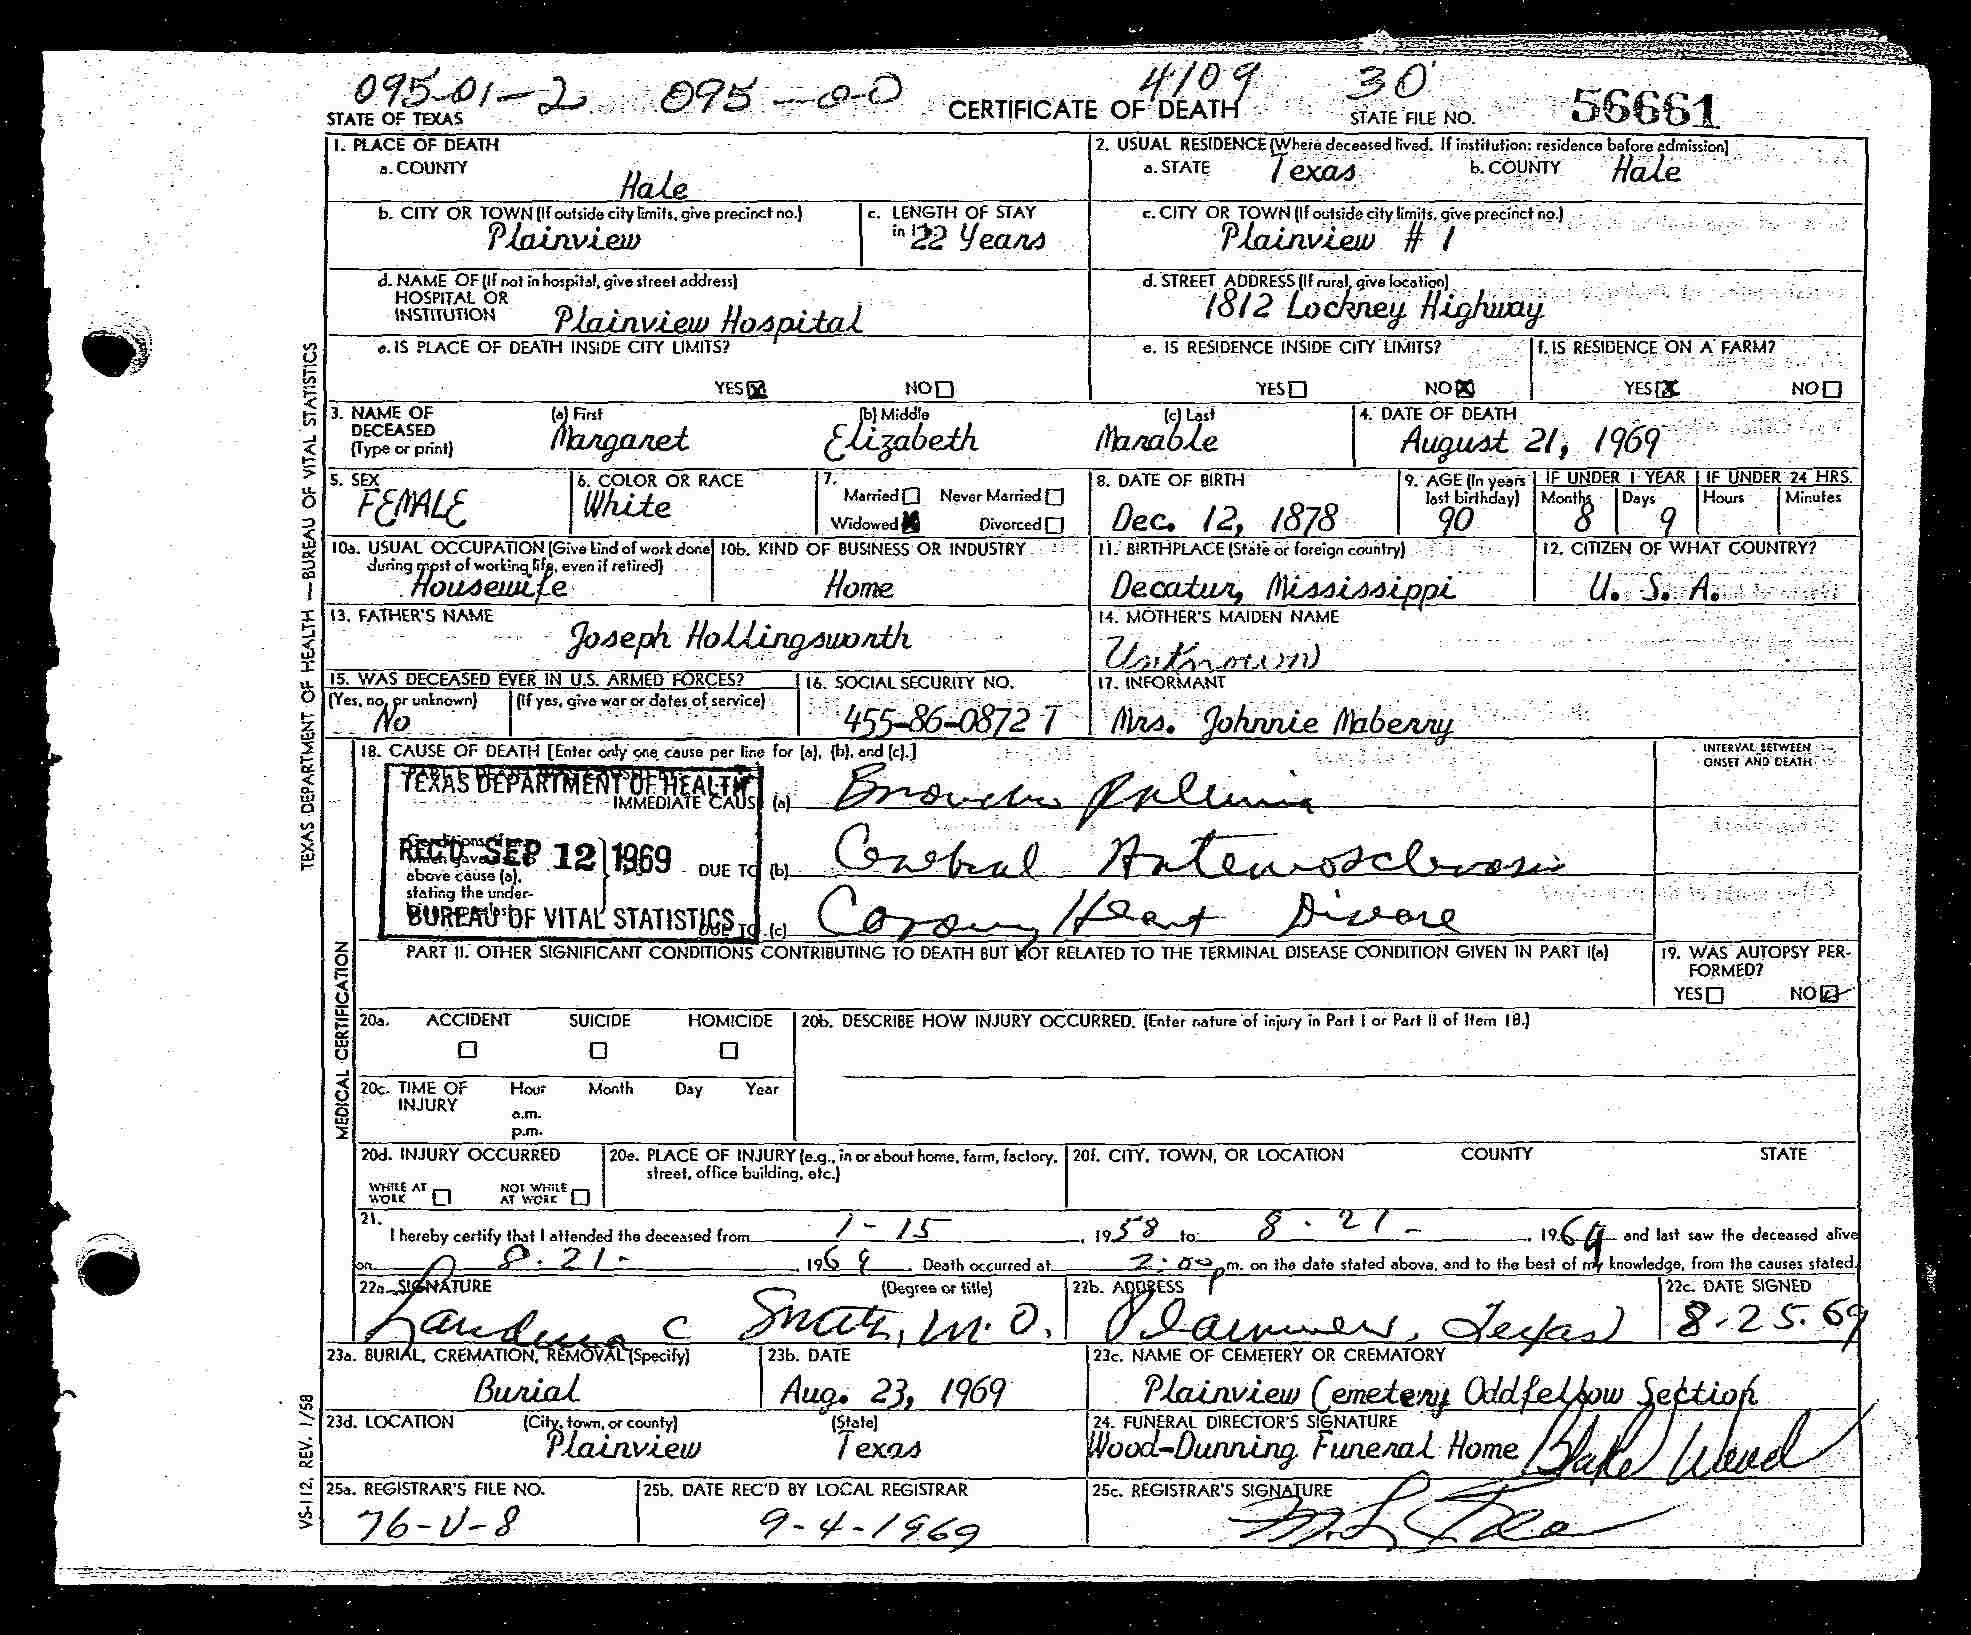 095-01-2 095-00 4109 30
STATE OF TEXAS CERTIFICATE OF DEATH STATE FILE NO. 56661
1. PLACE OF DEATH
a. COUNTY
Hale
2. USUAL RESIDENCE (Where deceased lived. If institution: residence before admission)
a. STATE Texas b. COUNTY Hale
b. CITY OR TOWN (If outside city limits, give precinct no.)
Plainview
c. LENGTH OF STAY
in 22 Years
c. CITY OR TOWN (If outside city limits, give precinct no.)
Plainview # 1
d. NAME OF (If not in hospital, give street address)
HOSPITAL OR
INSTITUTION Plainview Hospital
d. STREET ADDRESS (If rural, give location)
1812 Lockney Highway
e. IS PLACE OF DEATH INSIDE CITY LIMITS?
YES NO
e. IS RESIDENCE INSIDE CITY LIMITS?
YES NO
f. IS RESIDENCE ON A FARM?
YES NO
3. NAME OF DECEASED (Type or print)
(a) First (b) Middle (c) Last
Margaret Elizabeth Manable
4. DATE OF DEATH
August 21, 1969
5. SEX
FEMALE
6. COLOR OR RACE
White
7.
Married Never Married
Widowed Divorced
8. DATE OF BIRTH
Dec. 12, 1878
9. AGE (In years last birthday)
90
IF UNDER 1 YEAR
Months Days
8 9
IF UNDER 24 HRS.
Hours Minutes
10a. USUAL OCCUPATION (Give kind of work done
during most of working life, even if retired)
Housewife
10b. KIND OF BUSINESS OR INDUSTRY
Home
11. BIRTHPLACE (State or foreign country)
Decatur, Mississippi
12. CITIZEN OF WHAT COUNTRY?
U. S. A.
13. FATHER'S NAME
Joseph Hollingsworth
14. MOTHER'S MAIDEN NAME
Unknown
15. WAS DECEASED EVER IN U.S. ARMED FORCES?
(Yes, no, or unknown) (If yes, give war or dates of service)
No
16. SOCIAL SECURITY NO.
455-86-0872 T
17. INFORMANT
Mrs. Johnnie Maberry
18. CAUSE OF DEATH [Enter only one cause per line for (a), (b), and (c).]
INTERVAL BETWEEN
ONSET AND DEATH
TEXAS DEPARTMENT OF HEALTH
IMMEDIATE CAUSE (a) Broncho
REC'D SEP 12 1969
above cause (a),
stating the under-
DUE TO (b) Cerebral Arteriosclerosis
BUREAU OF VITAL STATISTICS
DUE TO (c) Coronary Heart Disease
PART II. OTHER SIGNIFICANT CONDITIONS CONTRIBUTING TO DEATH BUT NOT RELATED TO THE TERMINAL DISEASE CONDITION GIVEN IN PART I(a)
19. WAS AUTOPSY PER-
FORMED?
YES NO
20a. ACCIDENT SUICIDE HOMICIDE
20b. DESCRIBE HOW INJURY OCCURRED. (Enter nature of injury in Part I or Part II of Item 18.)
20c. TIME OF INJURY Hour Month Day Year
a.m.
p.m.
20d. INJURY OCCURRED
WHILE AT WORK NOT WHILE AT WORK
20e. PLACE OF INJURY (e.g., in or about home, farm, factory,
street, office building, etc.)
20f. CITY, TOWN, OR LOCATION COUNTY STATE
21.
I hereby certify that I attended the deceased from 1-15, 1958 to 8-21-, 1969 and last saw the deceased alive
on 8-21-, 1969. Death occurred at 2:00 p.m. on the date stated above, and to the best of my knowledge, from the causes stated.
22a. SIGNATURE (Degree or title)
C Smith, M.D.
22b. ADDRESS
Plainview, Texas
22c. DATE SIGNED
8-25-69
23a. BURIAL, CREMATION, REMOVAL (Specify)
Burial
23b. DATE
Aug. 23, 1969
23c. NAME OF CEMETERY OR CREMATORY
Plainview Cemetery Oddfellow Section
23d. LOCATION (City, town, or county) (State)
Plainview Texas
24. FUNERAL DIRECTOR'S SIGNATURE
Wood-Dunning Funeral Home Blake Wood
25a. REGISTRAR'S FILE NO.
76-V-8
25b. DATE REC'D BY LOCAL REGISTRAR
9-4-1969
25c. REGISTRAR'S SIGNATURE
TEXAS DEPARTMENT OF HEALTH — BUREAU OF VITAL STATISTICS
MEDICAL CERTIFICATION
VS-112, REV. 1/58